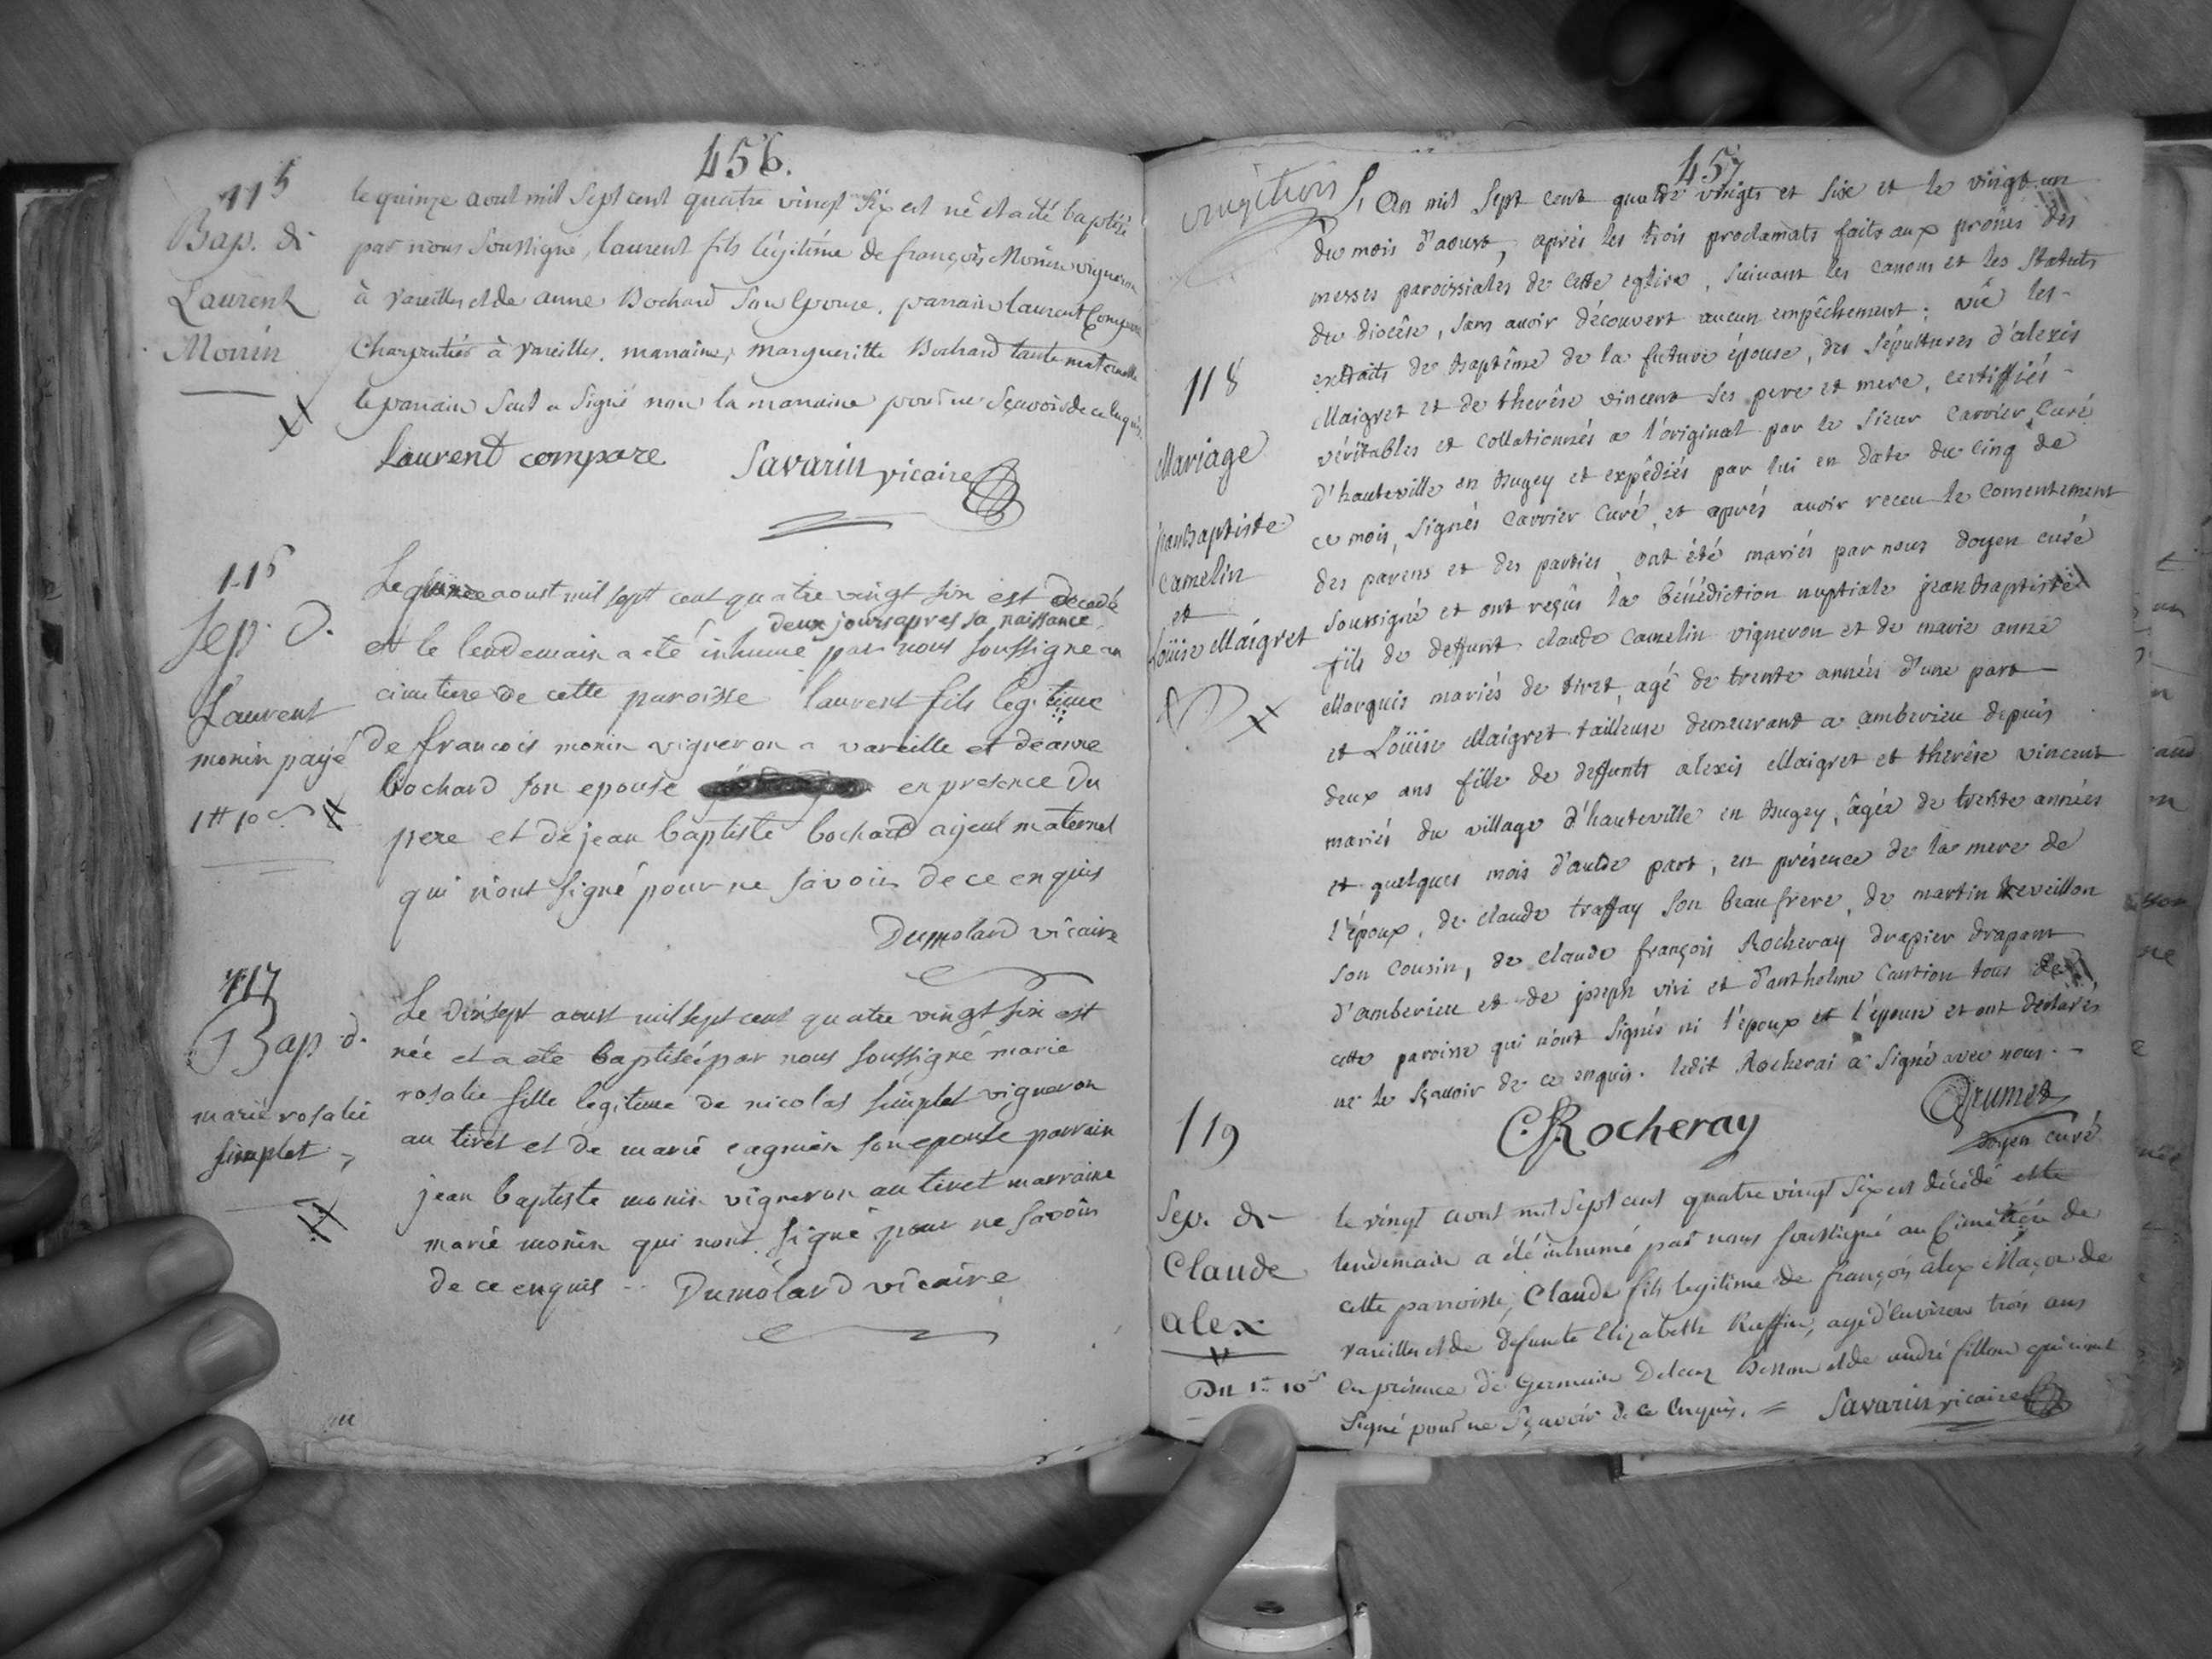 456.
115
Bap. de
Laurent
Monin
le quinze aout mil sept cent quatre vingt six est né et a été baptisé
par nous soussigné, laurent fils légitime de françois Monin vigneron
à vareilles et de anne Bochard son epouse. parrain laurent Compare
Charpentier à vareilles. marraine, margueritte Bochard tante maternelle
le parrain seul a signé non la marraine pour ne sçavoir de ce enquis.
Laurent compare Savarin vicaire
116
Sep. d.
Laurent
monin payé
1tt 10s
Le aoust mil sept cent quatre vingt six est decedé
deux jours apres sa naissance
et le lendemain a eté inhumé par nous soussigné au
cimetiere de cette paroisse laurent fils legitime
de francois monin vigneron a vareille et de anne
bochard son epouse en presence du
pere et de jean baptiste bochard ajeul maternel
qui n'ont signé pour ne savoir de ce enquis
Dumolard vicaire
117
Bap. d.
marie rosalie
simplet
Le dixsept aoust mil sept cent quatre vingt six est
née et a eté baptisée par nous soussigné marie
rosalie fille legitime de nicolas simplet vigneron
au tiret et de marie cagnin son epouse parrain
jean baptiste monin vigneron au tiret marraine
marie monin qui n'ont signé pour ne savoir
de ce enquis Dumolard vicaire
457
L'An mil sept cent quatre vingts et six et le vingt un
du mois d'aoust, après les trois proclamats faits aux prones des
messes paroissiales de cette eglise, suivant les canons et les statuts
du diocèse, sans avoir découvert aucun empêchement; vû les
extraits de baptême de la future épouse, des sépultures d'alexis
Maigret et de therêse vincent ses pere et mere, certiffiés
véritables et collationnés a l'original par le sieur Carrier Curé
d'hauteville en Bugey et expédiés par lui en date du cinq de
ce mois, signés Carrier Curé, et aprés avoir receu le consentement
des parens et des parties ont été mariés par nous doyen curé
soussigné et ont reçûs la bénédiction nuptiale jean baptiste
fils de deffunt claude Camelin vigneron et de marie anne
Marquis mariés de tiret, agé de trente années d'une part
et Loüise Maigret tailleuse demeurant a amberieu depuis
deux ans fille de deffunts alexis Maigret et therêse vincent
mariés du village d'hauteville en Bugey, âgée de trente années
et quelques mois d'autre part, en présence de la mere de
l'époux, de claude traffay son beau frere, de martin Reveillon
son cousin, de claude françois Rocheray drapier drapant
d'amberieu et de joseph vivi et d'anthelme Cantion tous de
cette paroisse qui n'ont signés ni l'époux et l'épouse et ont déclarés
ne le sçavoir de ce enquis. ledit Rocherai a signé avec nous.
118
Mariage
jean baptiste
Camelin
et
Loüise Maigret
C. f. Rocheray Grumet
doyen curé
119
Sep. de
Claude
alex
Du 1tt 10s
le vingt aout mil sept cent quatre vingt six est décédé et le
lendemain a été inhumé par nous soussigné au Cimetière de
cette parroisse, Claude fils legitime de françois alex Maçon de
vareilles et de defunte Elizabeth Ruffin, agé d'environ trois ans
en présence de Germain et de andré fillon qui n'ont
signé pour ne sçavoir de ce enquis. Savarin vicaire